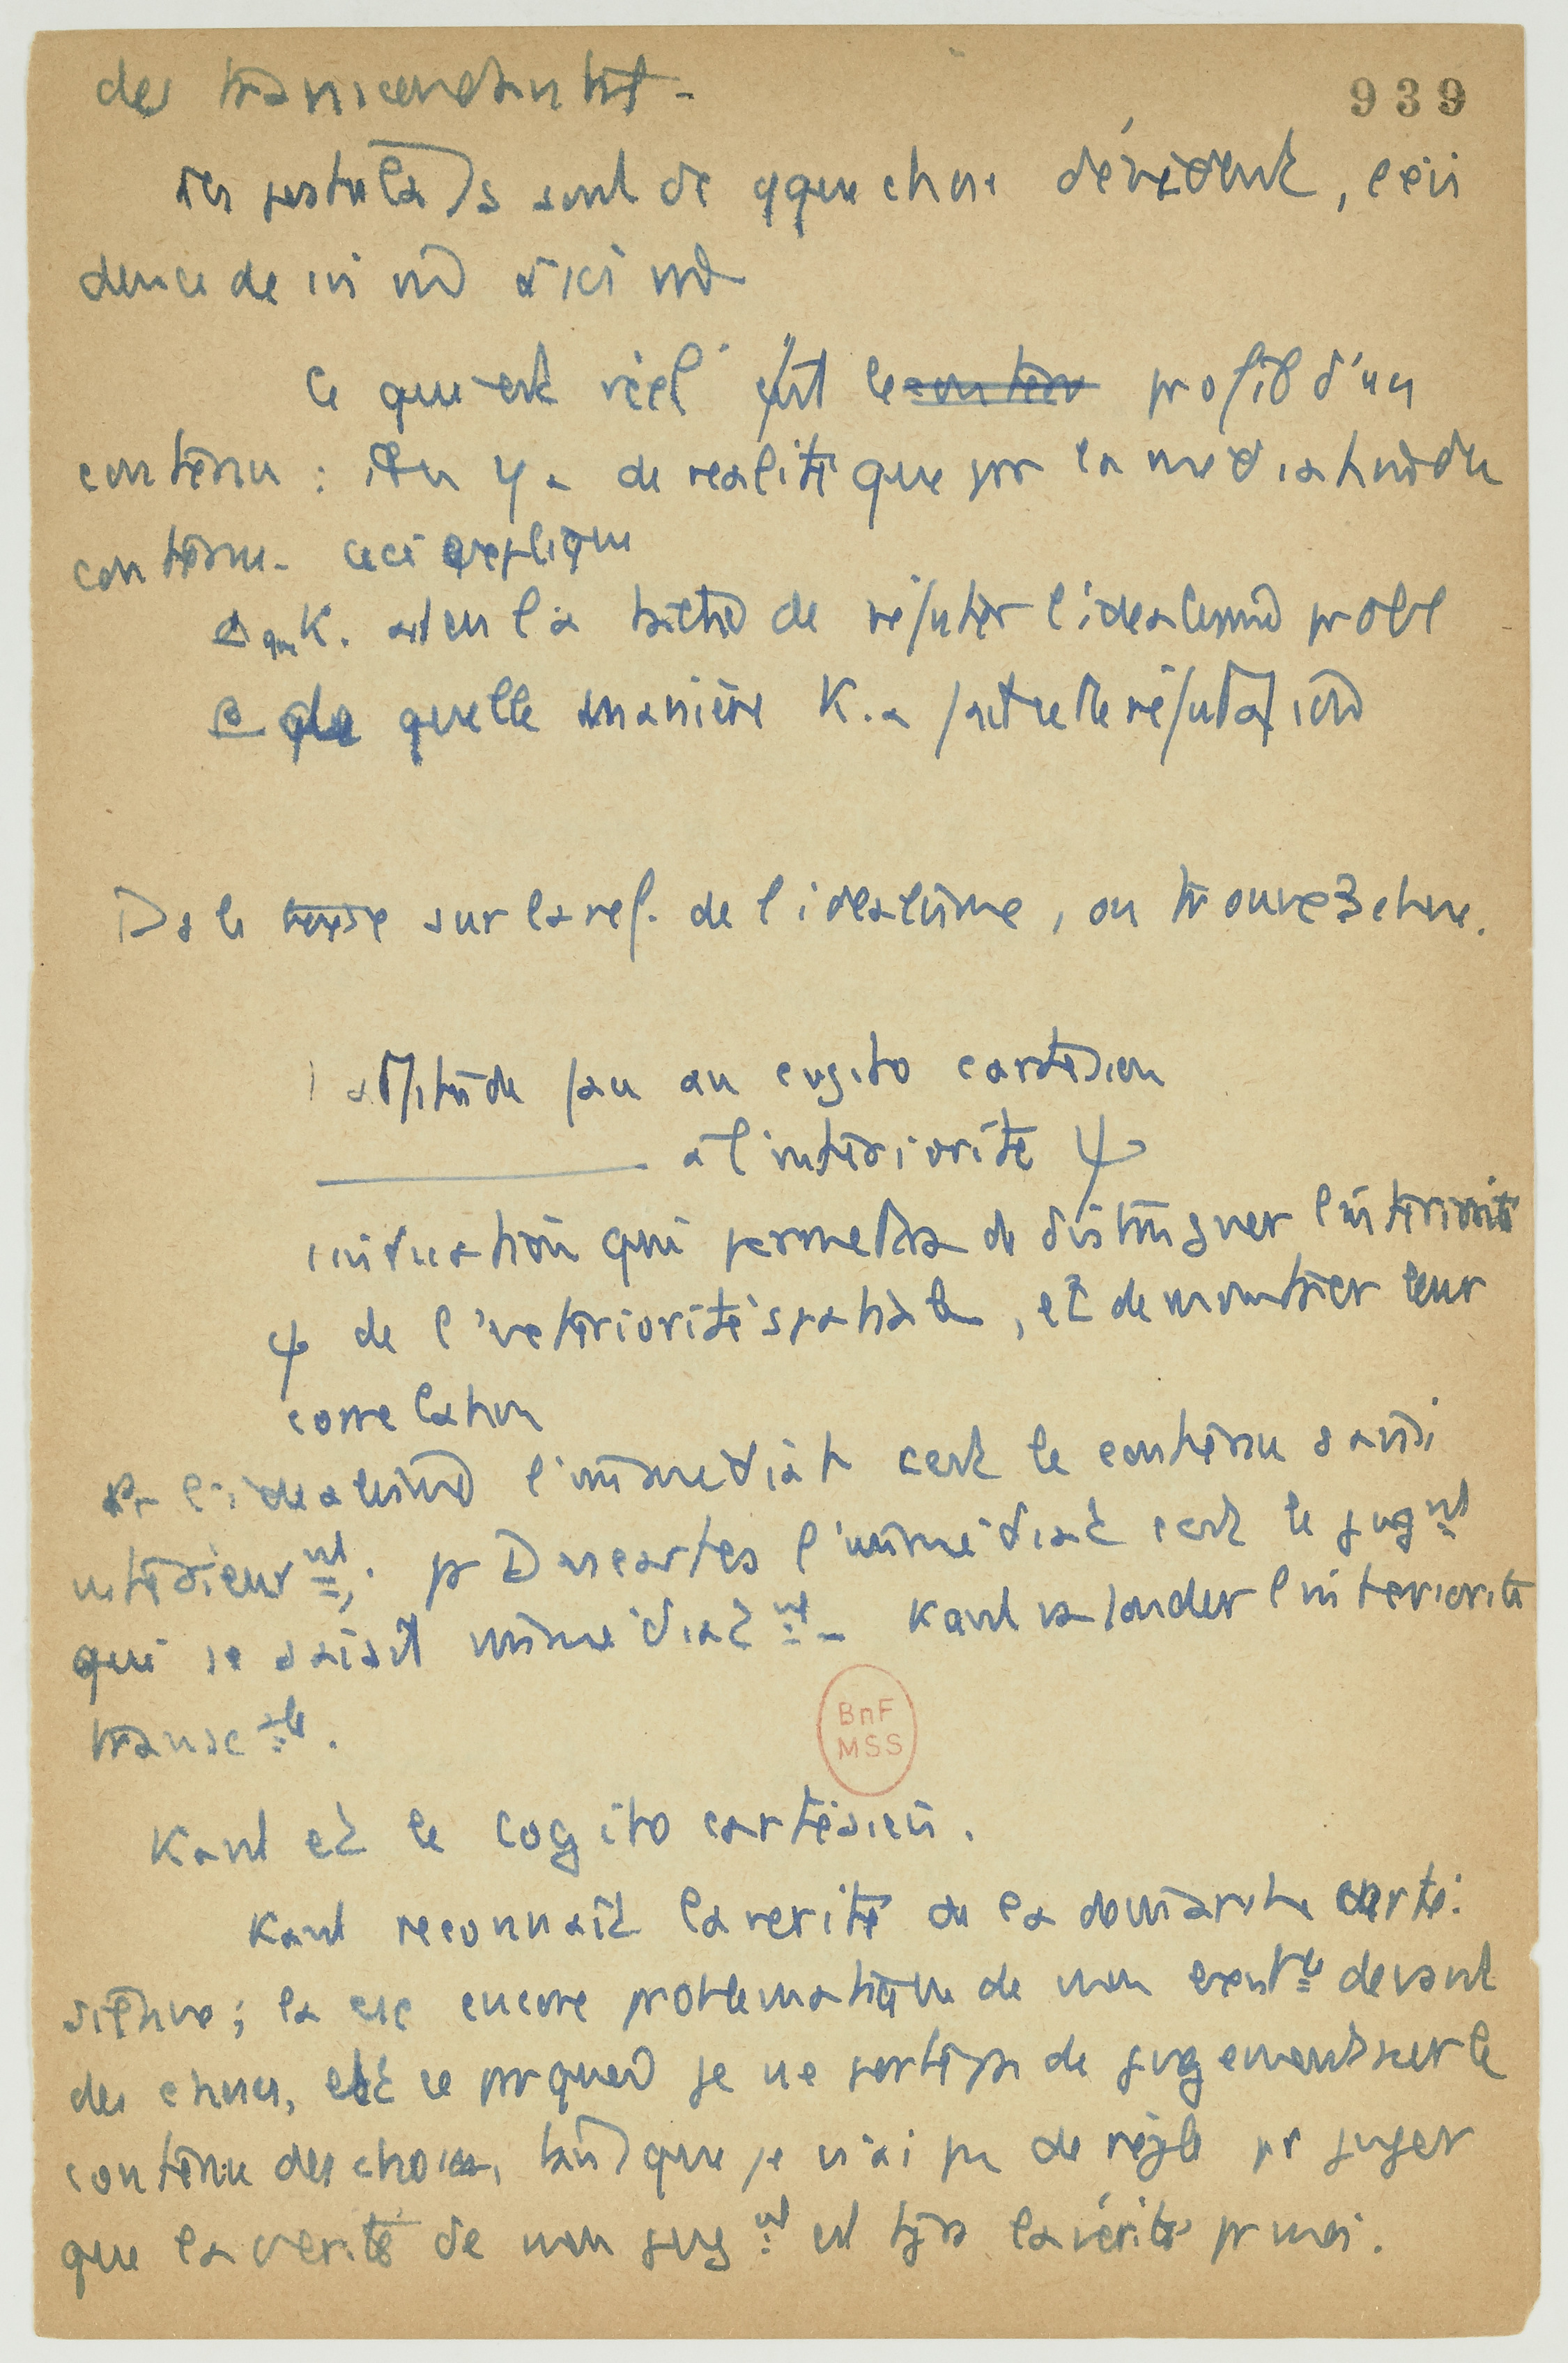 des transcendantat -
939
les postulats sont de qque chose d'évident, l'évi
dence de
Ce qui est réel est le profil d'un
contenu : il n'y a de réalité que par la médiation du
contenu - ceci explique
que K. ait eu la de réfuter l'idéalisme probl
β de quelle manière K. a fait cette réfutation
Ds le texte sur la réf. de l'idéalisme, on trouve 3 choses.
attitude face au cogito cartésien
à l'intériorité ψ
indication qui permettra de distinguer l'intériorité
ψ de l'extériorité spatiale, et de montrer leur
corrélation
Pr l'idéalisme l'immédiat c'est le contenu saisi
intérieur nt ; pr Descartes l'immédiat c'est le jug nt
qui se saisit immédiat nt - Kant va fonder l'intériorité
transc ale.
Kant et le cogito cartésien.
Kant reconnaît la vérité de la démarche carté-
sienne ; la encore problématique de mon devant
des choses, est ce pourquoi je ne porte pas de jugement sur le
contenu des choses, que je n'ai pas de règle pr juger
que la vérité de mon jug nt est tjrs la vérité pr moi.
BnF
MSS